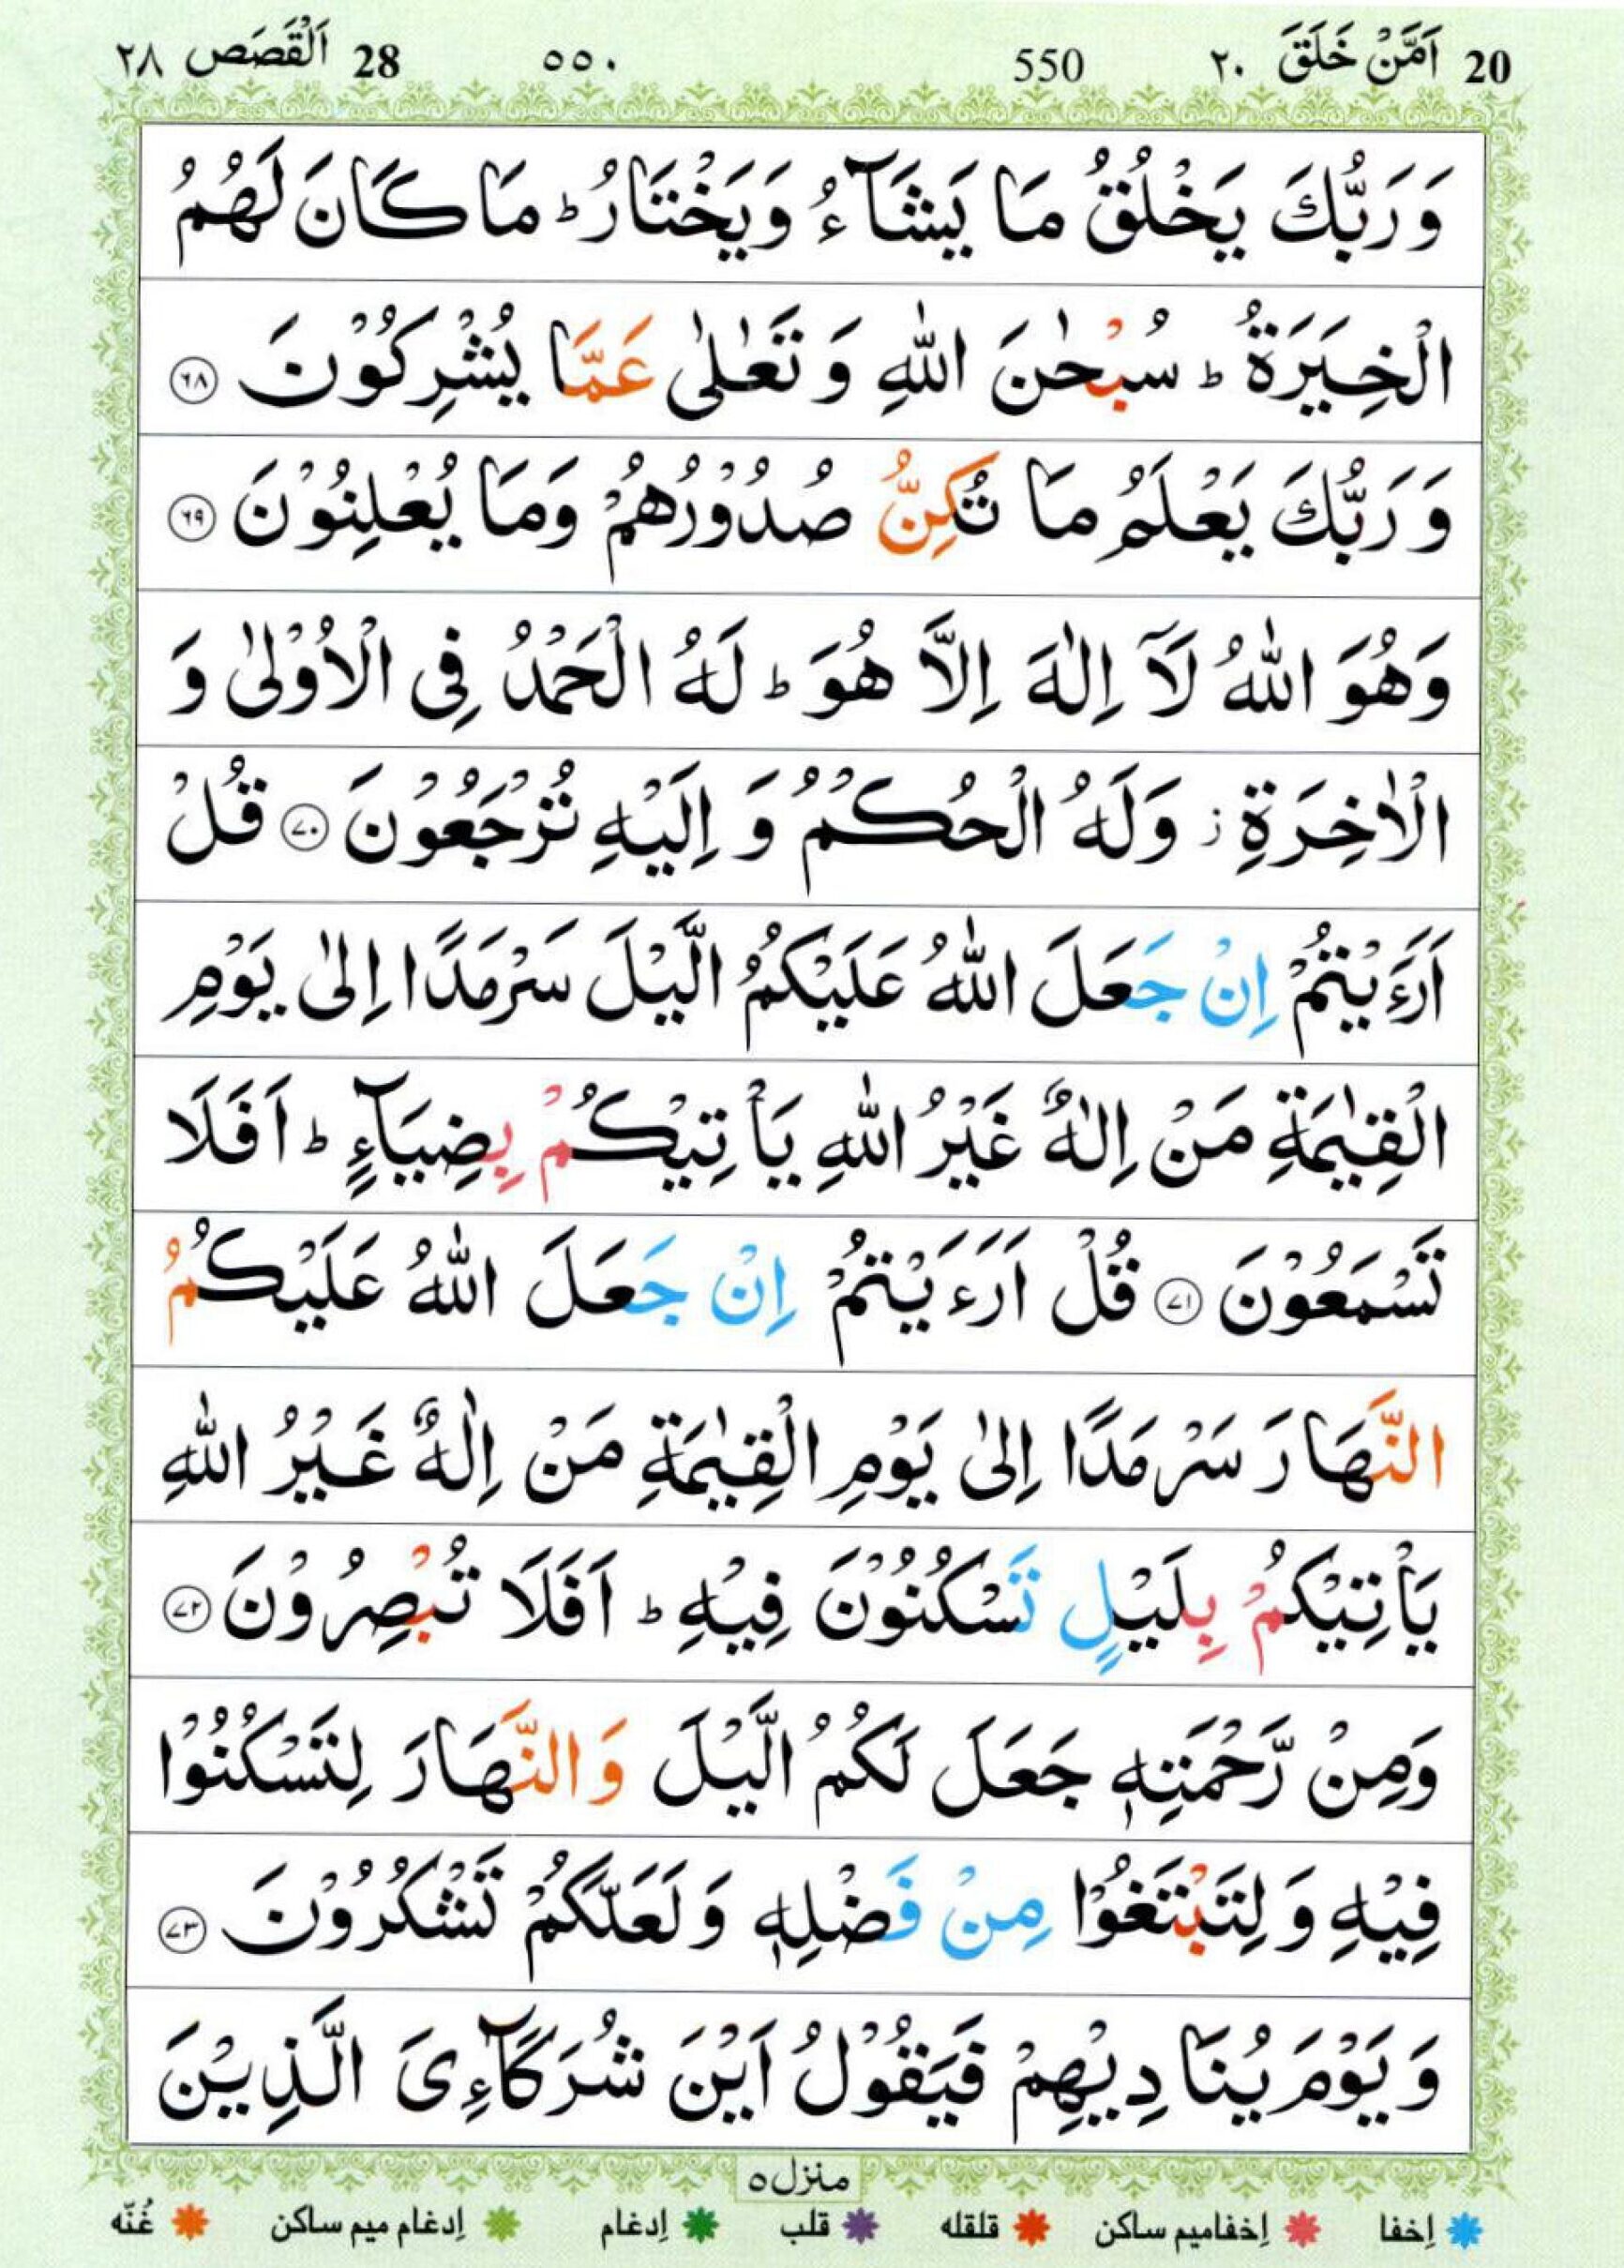 20 اَمَّنْ خَلَقَ ٢٠ 550 ٥٥٠ 28 اَلْقَصَص ٢٨
وَ رَبُّكَ يَخْلُقُ مَا يَشَآءُ وَيَخْتَارُ ؕ مَا كَانَ لَهُمُ
الْخِيَرَةُ ؕ سُبْحٰنَ اللّٰهِ وَ تَعٰلٰى عَمَّا يُشْرِكُوْنَ ﴿٦٨﴾
وَ رَبُّكَ يَعْلَمُ مَا تُكِنُّ صُدُوْرُهُمْ وَمَا يُعْلِنُوْنَ ﴿٦٩﴾
وَهُوَ اللّٰهُ لَآ اِلٰهَ اِلَّا هُوَ ؕ لَهُ الْحَمْدُ فِى الْاُوْلٰى وَ
الْاٰخِرَةِ ؗ وَلَهُ الْحُكْمُ وَ اِلَيْهِ تُرْجَعُوْنَ ﴿٧٠﴾ قُلْ
اَرَءَيْتُمْ اِنْ جَعَلَ اللّٰهُ عَلَيْكُمُ الَّيْلَ سَرْمَدًا اِلٰى يَوْمِ
الْقِيٰمَةِ مَنْ اِلٰهٌ غَيْرُ اللّٰهِ يَاْتِيْكُمْ بِضِيَآءٍ ؕ اَفَلَا
تَسْمَعُوْنَ ﴿٧١﴾ قُلْ اَرَءَيْتُمْ اِنْ جَعَلَ اللّٰهُ عَلَيْكُمُ
النَّهَارَ سَرْمَدًا اِلٰى يَوْمِ الْقِيٰمَةِ مَنْ اِلٰهٌ غَيْرُ اللّٰهِ
يَاْتِيْكُمْ بِلَيْلٍ تَسْكُنُوْنَ فِيْهِ ؕ اَفَلَا تُبْصِرُوْنَ ﴿٧٢﴾
وَمِنْ رَّحْمَتِهٖ جَعَلَ لَكُمُ الَّيْلَ وَالنَّهَارَ لِتَسْكُنُوْا
فِيْهِ وَ لِتَبْتَغُوْا مِنْ فَضْلِهٖ وَ لَعَلَّكُمْ تَشْكُرُوْنَ ﴿٧٣﴾
وَ يَوْمَ يُنَادِيْهِمْ فَيَقُوْلُ اَيْنَ شُرَكَآءِىَ الَّذِيْنَ
منزل ٥
اِخفا اِخفامیم ساکن قلقله قلب اِدغام اِدغام میم ساکن غُنّه